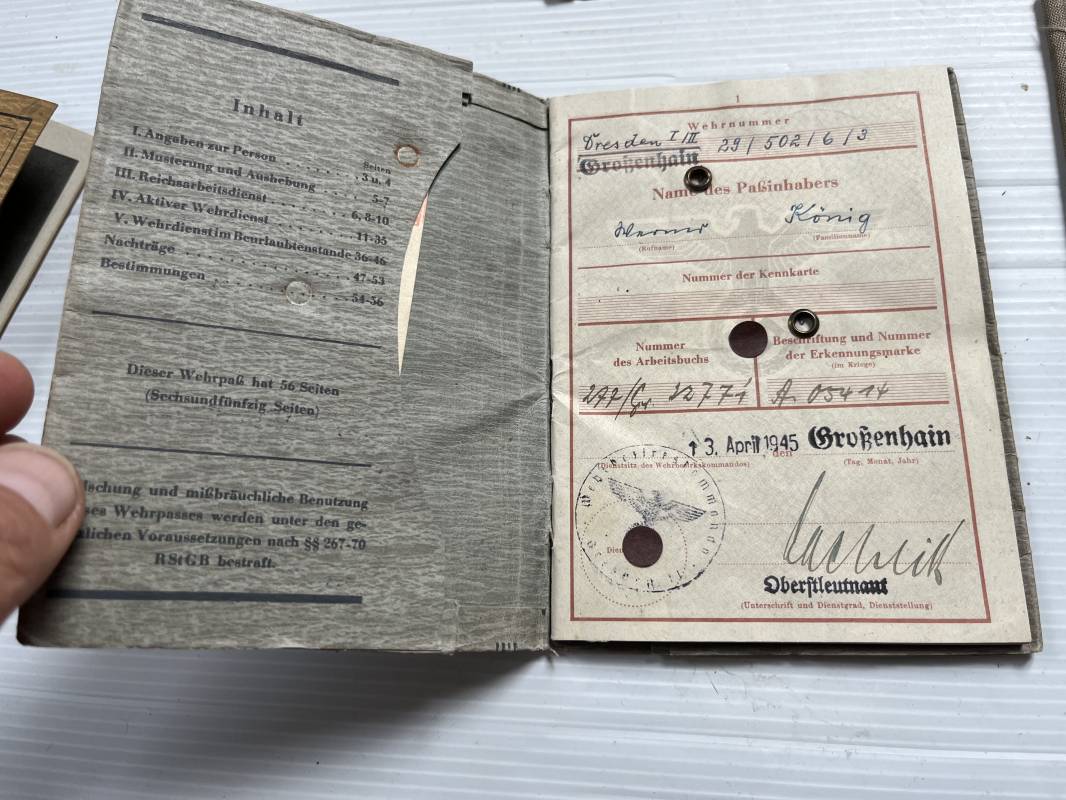 Inhalt
Seiten
I. Angaben zur Person . . . . 3 u. 4
II. Musterung und Aushebung . . . . 5-7
III. Reichsarbeitsdienst . . . . 6, 8-10
IV. Aktiver Wehrdienst . . . . 11-35
V. Wehrdienst im Beurlaubtenstande 36-46
Nachträge . . . . 47-53
Bestimmungen . . . . 54-56
Dieser Wehrpaß hat 56 Seiten
(Sechsundfünfzig Seiten)
schung und mißbräuchliche Benutzung
ses Wehrpasses werden unter den ge-
lichen Voraussetzungen nach §§ 267-70
RStGB bestraft.
1
Wehrnummer
Dresden I/III 29/502/6/3
Großenhain
Name des Paßinhabers
Werner König
(Rufname) (Familienname)
Nummer der Kennkarte
Nummer
des Arbeitsbuchs
Beschriftung und Nummer
der Erkennungsmarke
(im Kriege)
A. 03414
3. April 1945 Großenhain
, den
(Dienstsitz des Wehrbezirkskommandos) (Tag, Monat, Jahr)
Wehrbezirkskommando
Dien
Oberstleutnant
(Unterschrift und Dienstgrad, Dienststellung)